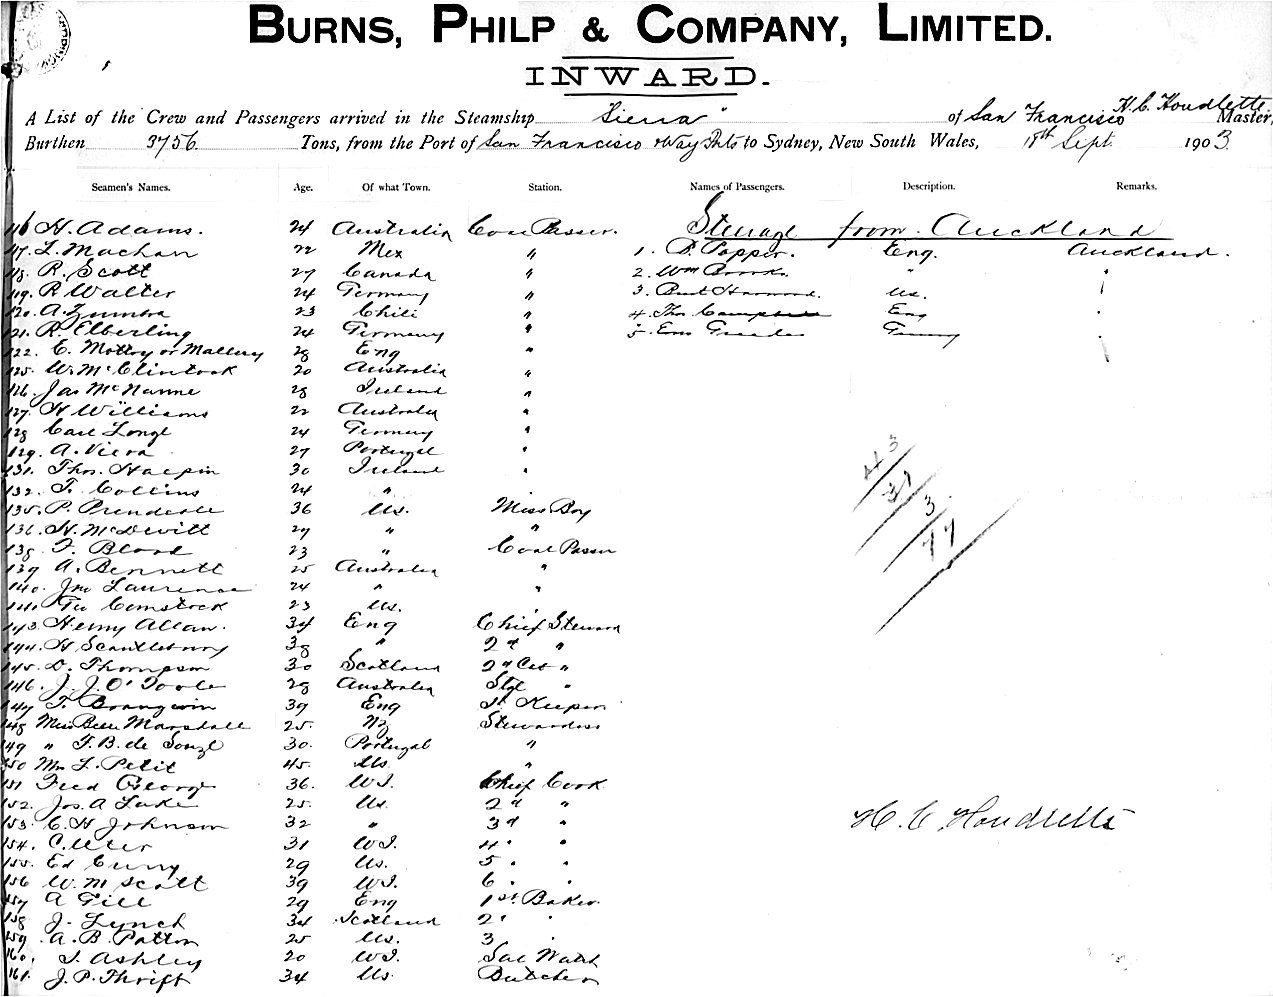 BURNS, PHILP & COMPANY, LIMITED.
INWARD.
H. C. Houdlette
A List of the Crew and Passengers arrived in the Steamship "Sierra" of San Francisco Master,
Burthen 3756 Tons, from the Port of San Francisco & Way Pts to Sydney, New South Wales, 18th Sept. 1903
Seamen's Names. Age. Of what Town. Station. Names of Passengers. Description. Remarks.
116 H. Adams. 24 Australia Coal Passer. Steerage from Auckland
117. L. Machan 22 Mex " 1. P. Popper. Eng. Auckland.
118. R. Scott 27 Canada " 2. Wm Brooks. " "
119. R Walter 24 Germany " 3. Burt Harwood. Us.
120. A. Zumba 23 Chili " 4. Thos Campbell Eng "
121. R. Elberling 24 Germany " 5. Germy
122. E. Mottoy or Mallery 28 Eng "
125. W. McClintock 20 Australia "
126. Jas McNamme 28 Ireland "
127. H Williams 22 Australia "
128 Carl Longe 24 Germany "
129. A. Viera 27 Portugal "
131. Thos. Halpin 30 Ireland "
132. T. Collins 24 "
135. P. Prendible 36 Us. Mess Boy
136. H. McDevitt 27 " "
138. F. Blood 23 " Coal Passer
139 A. Bennett 25 Australia "
140. Jno Laurence 24 " "
141. Comstock 23 Us. "
143. Henry Allan. 34 Eng Chief Steward
144. H Scantlebury 38 " 2d "
145. D. Thompson 30 Scotland 2d Cab "
146. J. J. O'Toole 28 Australia Stge "
147 T. Brangwin 39 Eng St. Keeper
148 Miss Belle Marshall 25. NZ Stewardess
149 " T. B. de Souze 30. Portugal "
150 Mrs L. Petit 45. Us. "
151 Fred George 36. W.I. Chief Cook
152. Jos. A Lake 25. Us. 2d "
153. C. H Johnson 32 " 3d "
154. C. Uter 31 W.I. 4 " "
155. Ed Curry 29 Us. 5 " "
156 W. M Scott 39 W.I. 6 " "
157 A Gill 29 Eng 1st Baker
158 J. Lynch 34 Scotland 2 " "
159 A. B. Patton 25 Us. 3 "
160. J. Ashley 20 W.I. Sal Watch
161. J. P. Thrift 34 Us. Butcher
43
31
3
77
H. C. Houdlette